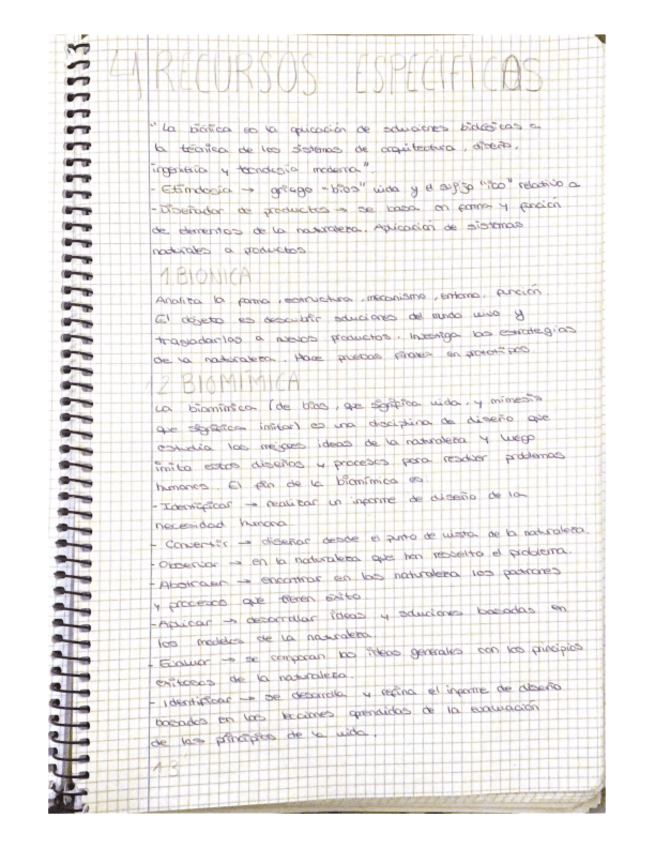 4 RECURSOS ESPECIFICOS
"La biónica es la aplicación de soluciones biológicas a
la técnica de los sistemas de arquitectura, diseño,
ingeniería y tecnología moderna".
- Etimología → griego - "bios" vida y el sufijo "ico" relativo a
- Diseñador de productos → se basa en forma y función
de elementos de la naturaleza. Aplicación de sistemas
naturales a productos
1. BIONICA
Analiza la forma, estructura, mecanismo, entorno, función
El objeto es descubrir soluciones del mundo vivo y
trasladarlas a nuevos productos. Investiga las estrategias
de la naturaleza. Hace pruebas finales en prototipos
2 BIOMIMICA
La biomímica (de bios, que significa vida, y mimesis
que significa imitar) es una disciplina de diseño que
estudia las mejores ideas de la naturaleza y luego
imita estos diseños y procesos para resolver problemas
humanos. El fin de la biomímica es
- Identificar → realizar un informe de diseño de la
necesidad humana
- Convertir → diseñar desde el punto de vista de la naturaleza.
- Observar → en la naturaleza que han resuelto el problema.
- Abstraer → encontrar en las naturaleza los patrones
y procesos que tienen éxito
- Aplicar → desarrollar ideas y soluciones basadas en
los modelos de la naturaleza
- Evaluar → se comparan las ideas generales con los principios
exitosos de la naturaleza.
- Identificar → se desarrolla y refina el informe de diseño
basados en las lecciones aprendidas de la evaluación
de los principios de la vida.
1.3